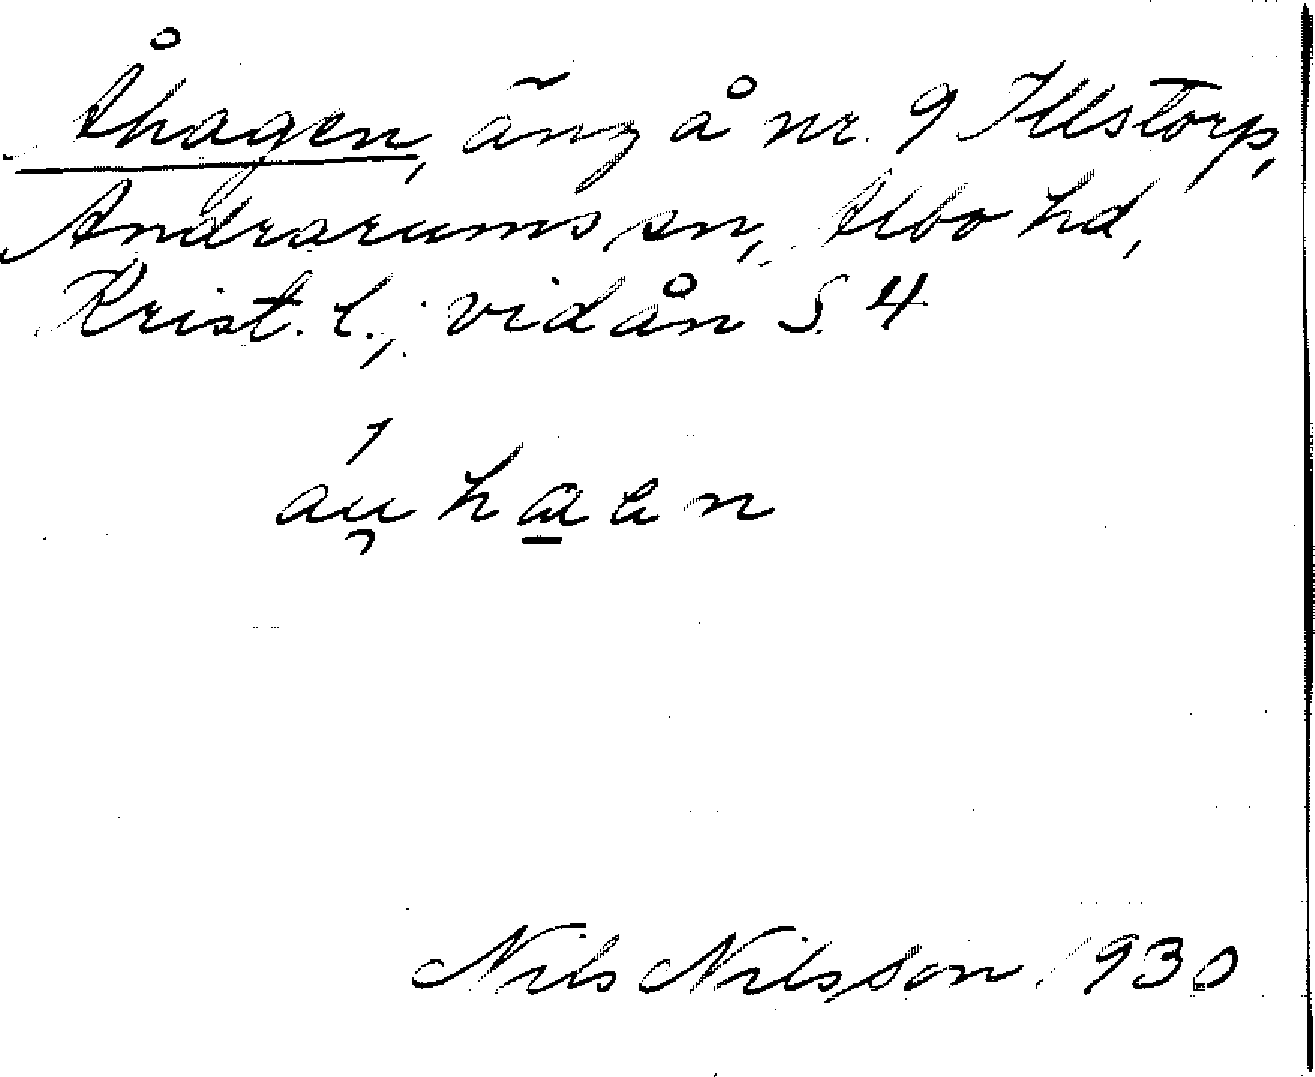 Åhagen, äng å nr. 9 Illstorp,
Andrarums sn, Albo hd,
Krist. l.; vid ån S. 4
áu̯ha̲en
Nils Nilsson 1930